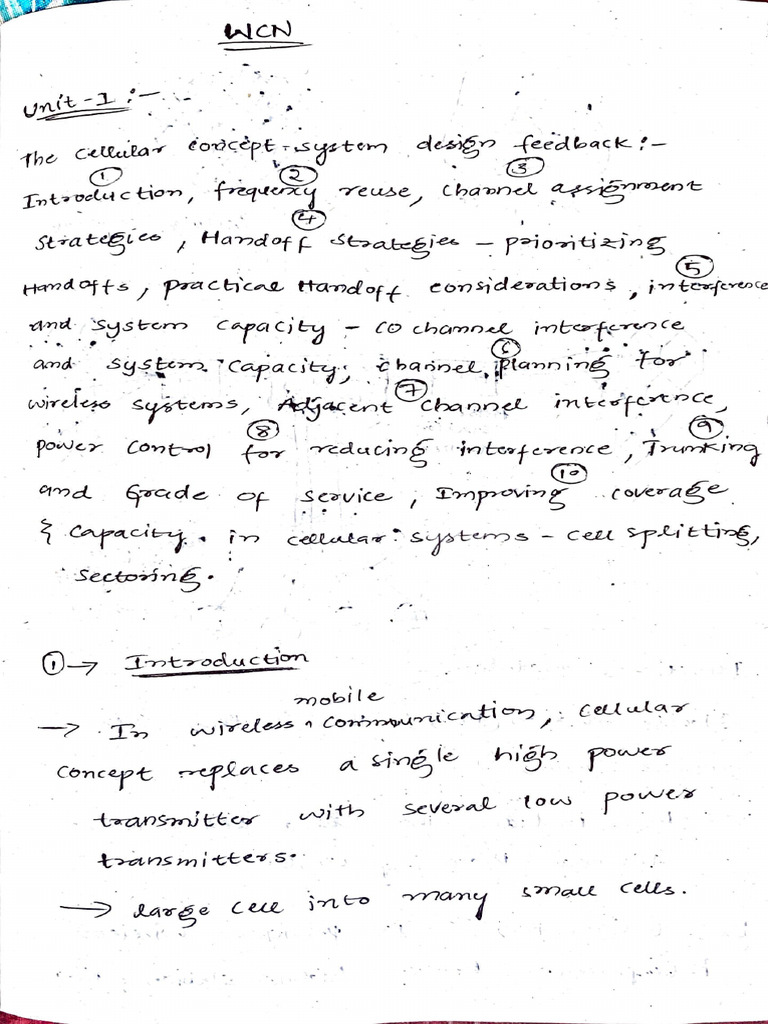 WCN
Unit-1 :-
The cellular concept-system design feedback :-
① ② ③
Introduction, frequency reuse, channel assignment
④
strategies, Handoff strategies - prioritizing
⑤
Handoffs, practical Handoff considerations, interference
and system capacity - co channel interference
⑥
and system capacity, channel planning for
⑦
wireless systems, Adjacent channel interference,
⑧ ⑨
power control for reducing interference, Trunking
⑩
and Grade of service, Improving coverage
& capacity. in cellular systems - cell splitting,
sectoring.
① → Introduction
mobile
→ In wireless ^ communication, cellular
concept replaces a single high power
transmitter with several low power
transmitters.
→ large cell into many small cells.